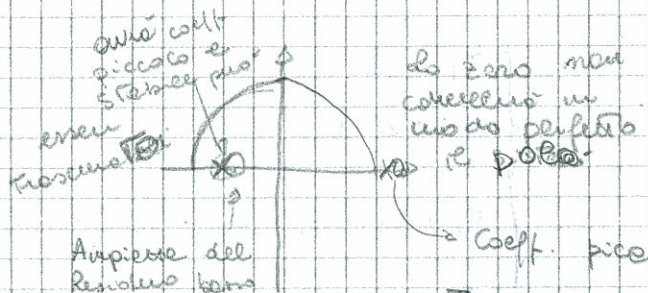 avrà coeff
piccolo e
stabile può
essere
trascurato
lo zero non
cancellerà in
modo perfetto
il polo.
Coeff. picc
Ampiezza del
Residuo